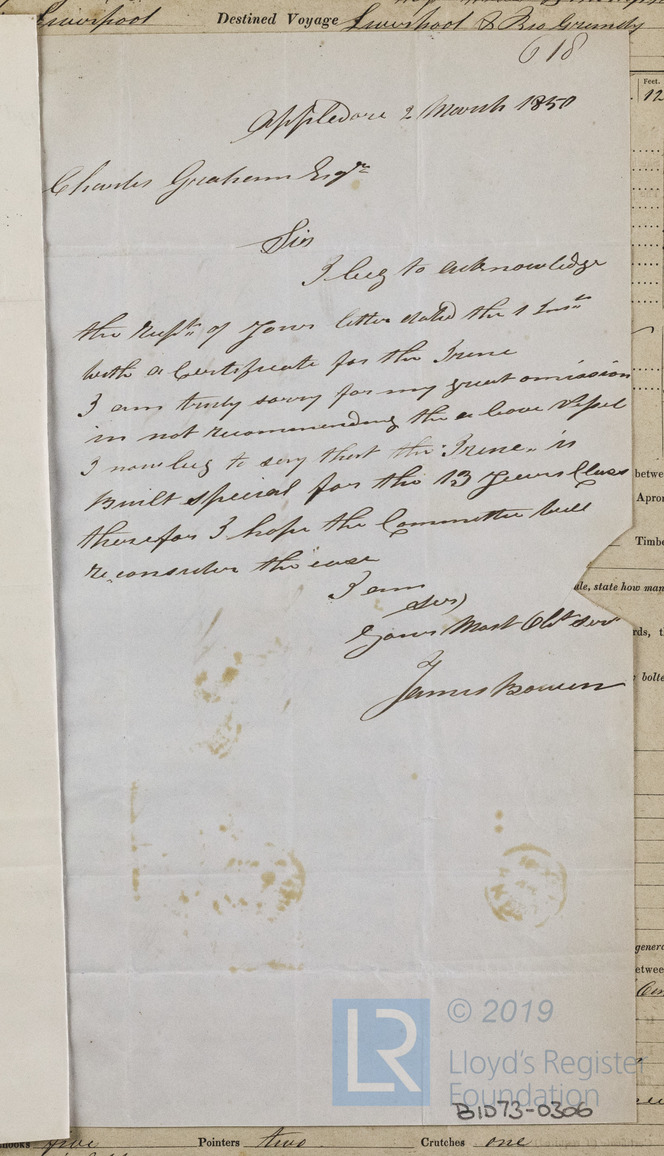 Liverpool Destined Voyage Liverpool & Rio Grande
618
Feet.
12
Appledore 2 March 1850
Charles Graham Esqre
Sir
I beg to acknowledge
the Rept. of Yours letter dated the 1 Inst
with a Certificate for the Irene
I am truly sorry for my great omission
in not recommending the above Vessel
I now beg to say that the "Irene" is
Built special for the 13 Years Class
therefor I hope the Committee will
reconsider the case
I am
Sir
Yours Most Obt Servt
James Bowen
betwe
Apron
Timbe
ule, state how man
rds, t
bolte
genera
etwee
LR © 2019
Lloyd's Register
Foundation
B1073-0306
Hooks five Pointers two Crutches one